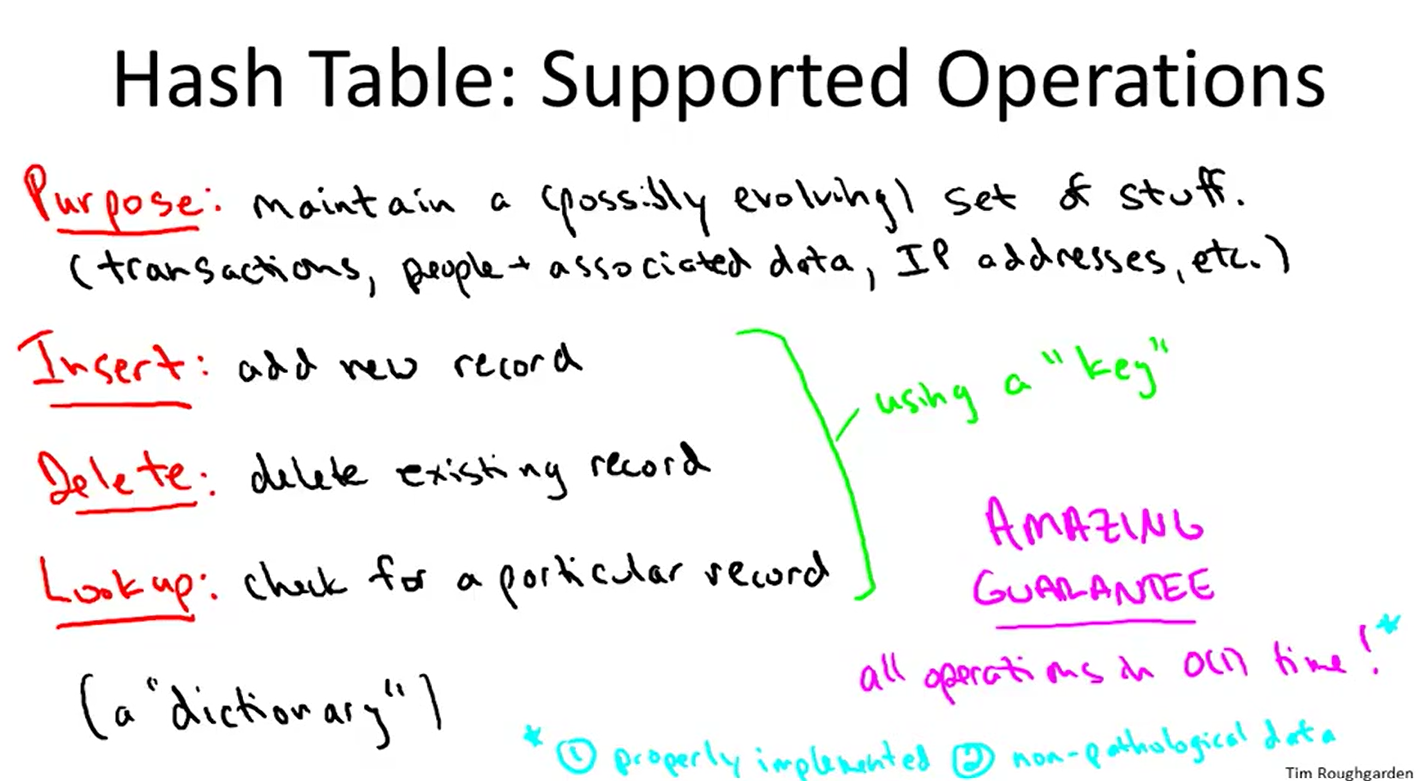 Hash Table: Supported Operations
Purpose: maintain a (possibly evolving) set of stuff.
(transactions, people + associated data, IP addresses, etc.)
Insert: add new record
using a "key"
Delete: delete existing record
Lookup: check for a particular record
AMAZING
GUARANTEE
all operations in O(1) time! *
(a "dictionary")
* ① properly implemented ② non-pathological data
Tim Roughgarden